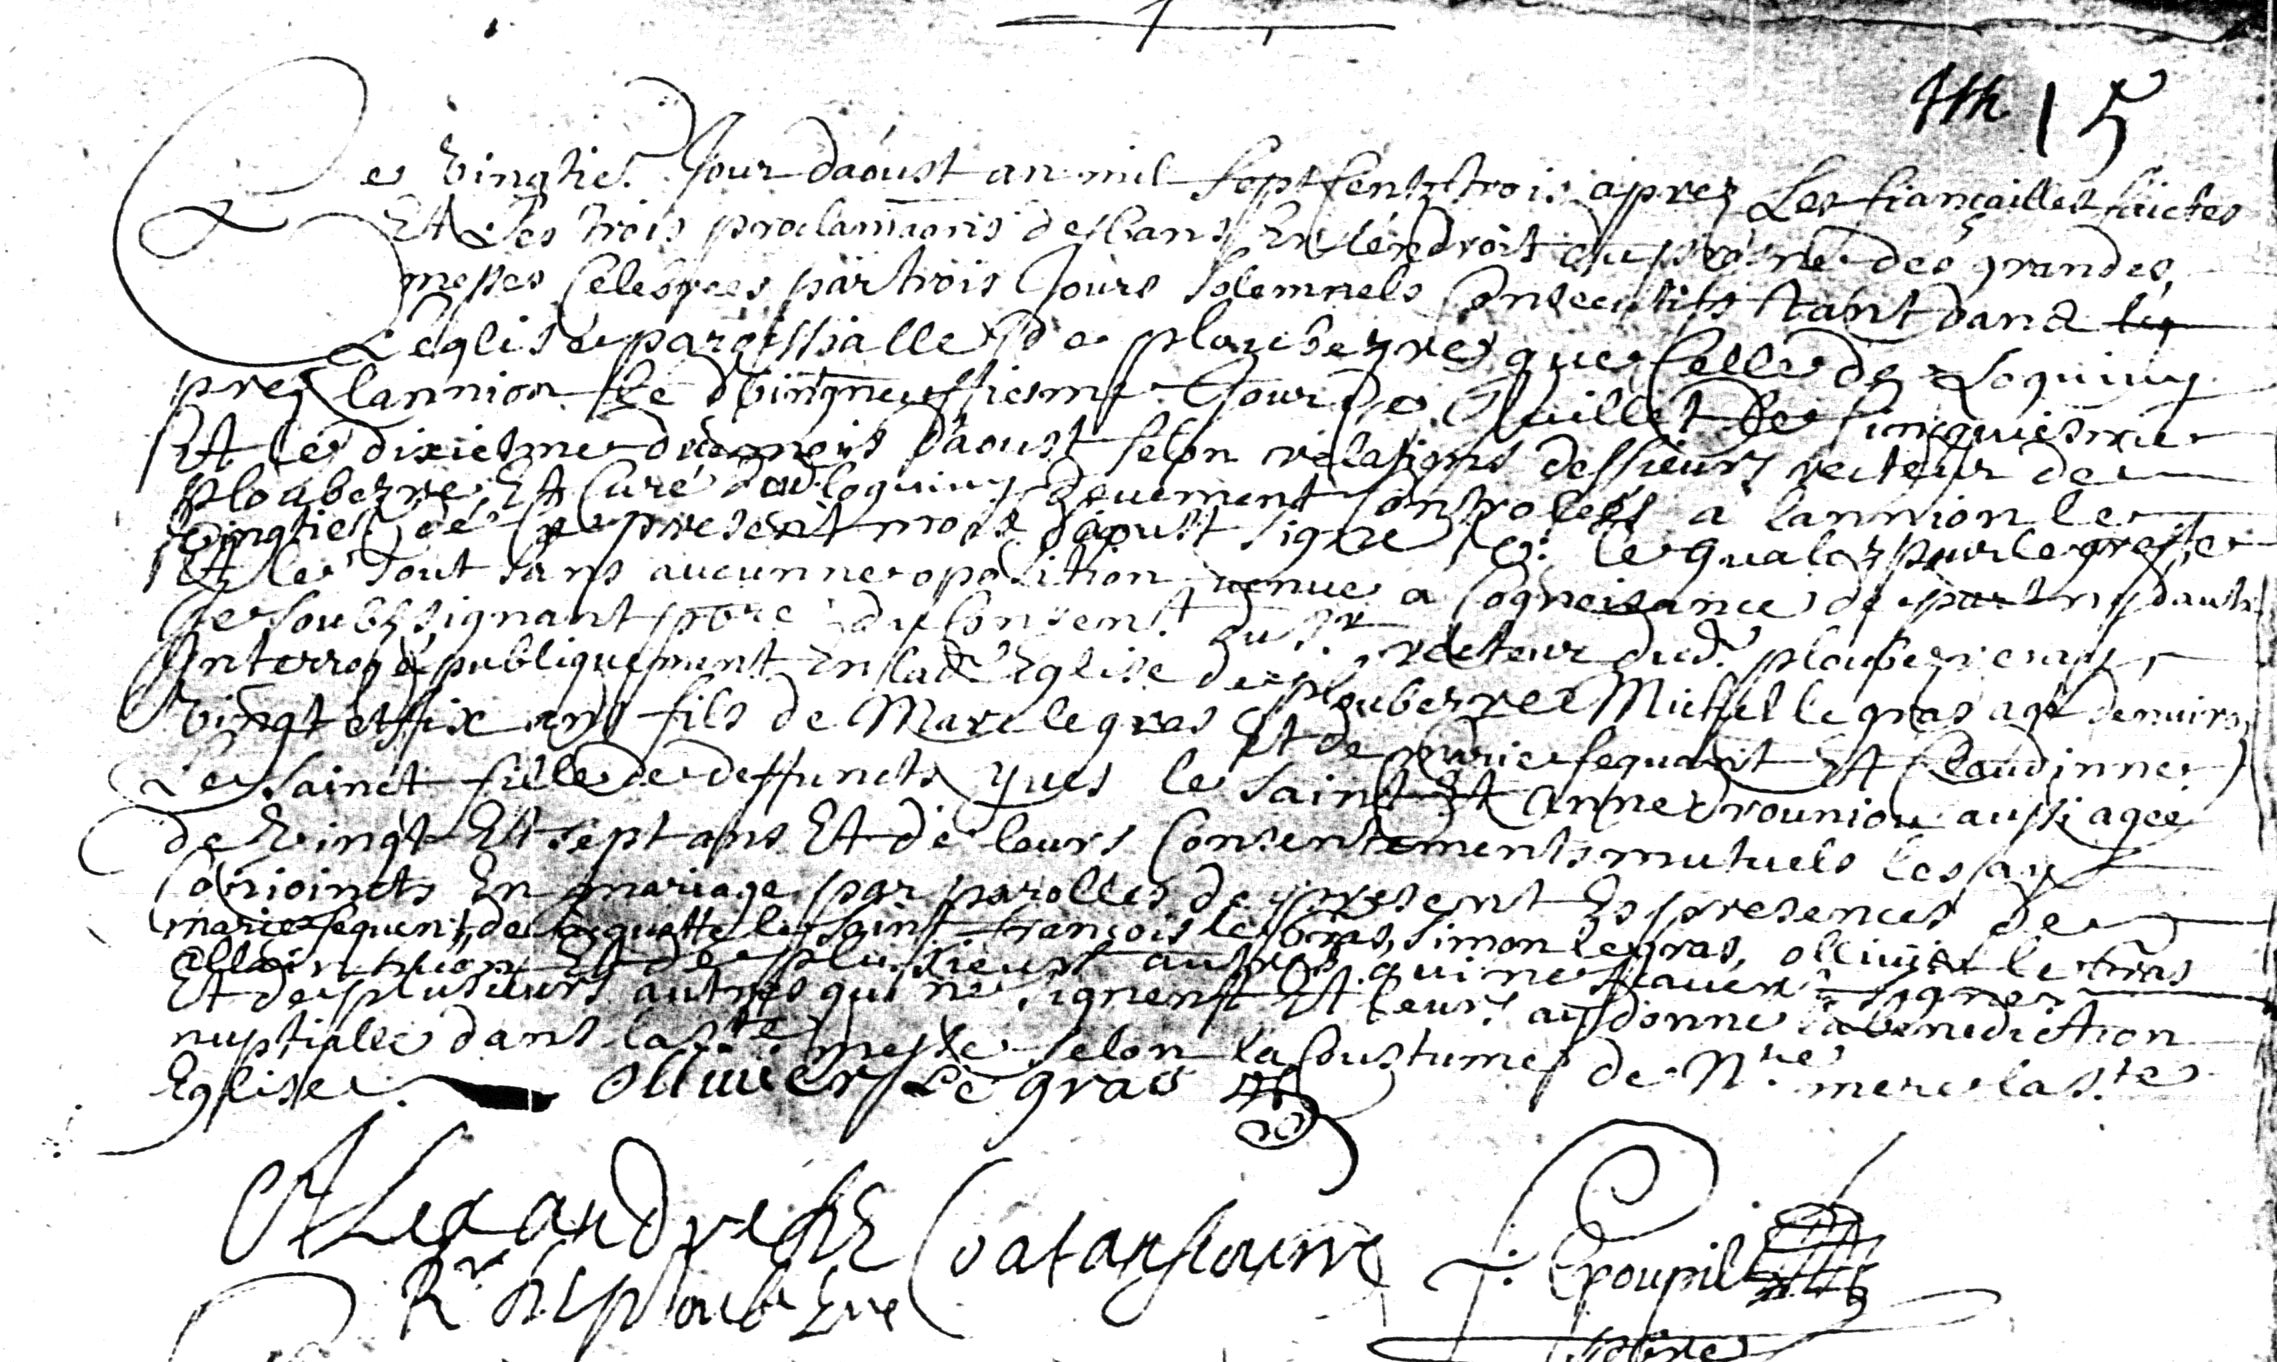 15
Ce vingtie. Jour d'aoust an mil sept cents trois aprez Les fiançailles faictes
Et Les trois proclamaons des bans En l'endroit du prosne des grandes
messes Celebrees par trois Jours solemnels Consecutifs tant dans
L'eglise paroissialle de ploubezre que Celle de Loquivy
prez lannion le vingneuffiesme Jour de Juillet Le Cincquiesme
Et le dixiesme du mois d'aoust selon relations des sieurs recteur de
ploubezre Et Curé de loquivy deuement Controlées a lannion le
vingties de ce present mois d'aoust signé le gualez pour le greffe
Et le tout sans aucunne oposition venue a Cognoissance de part ny d'autre
Je soubsignant pbre du Consent. du Sr. recteur dud. ploubezre ay
Interrogé publiquement En lad Eglise de ploubezre Michel le gras agé d'envirs
vingt et six ans fils de Marc le gras Et de marie sequent Et Claudinne
Le sainct fille de deffuncts yves le saint Et Anne drouniou aussi agee
de vingt Et sept ans Et de leurs Consentements mutuels les ay
Conjoincts En mariage par parolles de present Es presences de
marie sequent, de le saint françois le bras, simon le gras, ollivier le bras
Et de plusieurs autres qui ne scavent signer
Et de plusieurs autres qui ne signent Et leurs ay donné la benediction
nuptialle dans la ste messe selon la Coustume de Nre mere la ste
Eglise. ollivier Le gras
Alexandre Coatanscourre
Rr de ploubezre
pbre